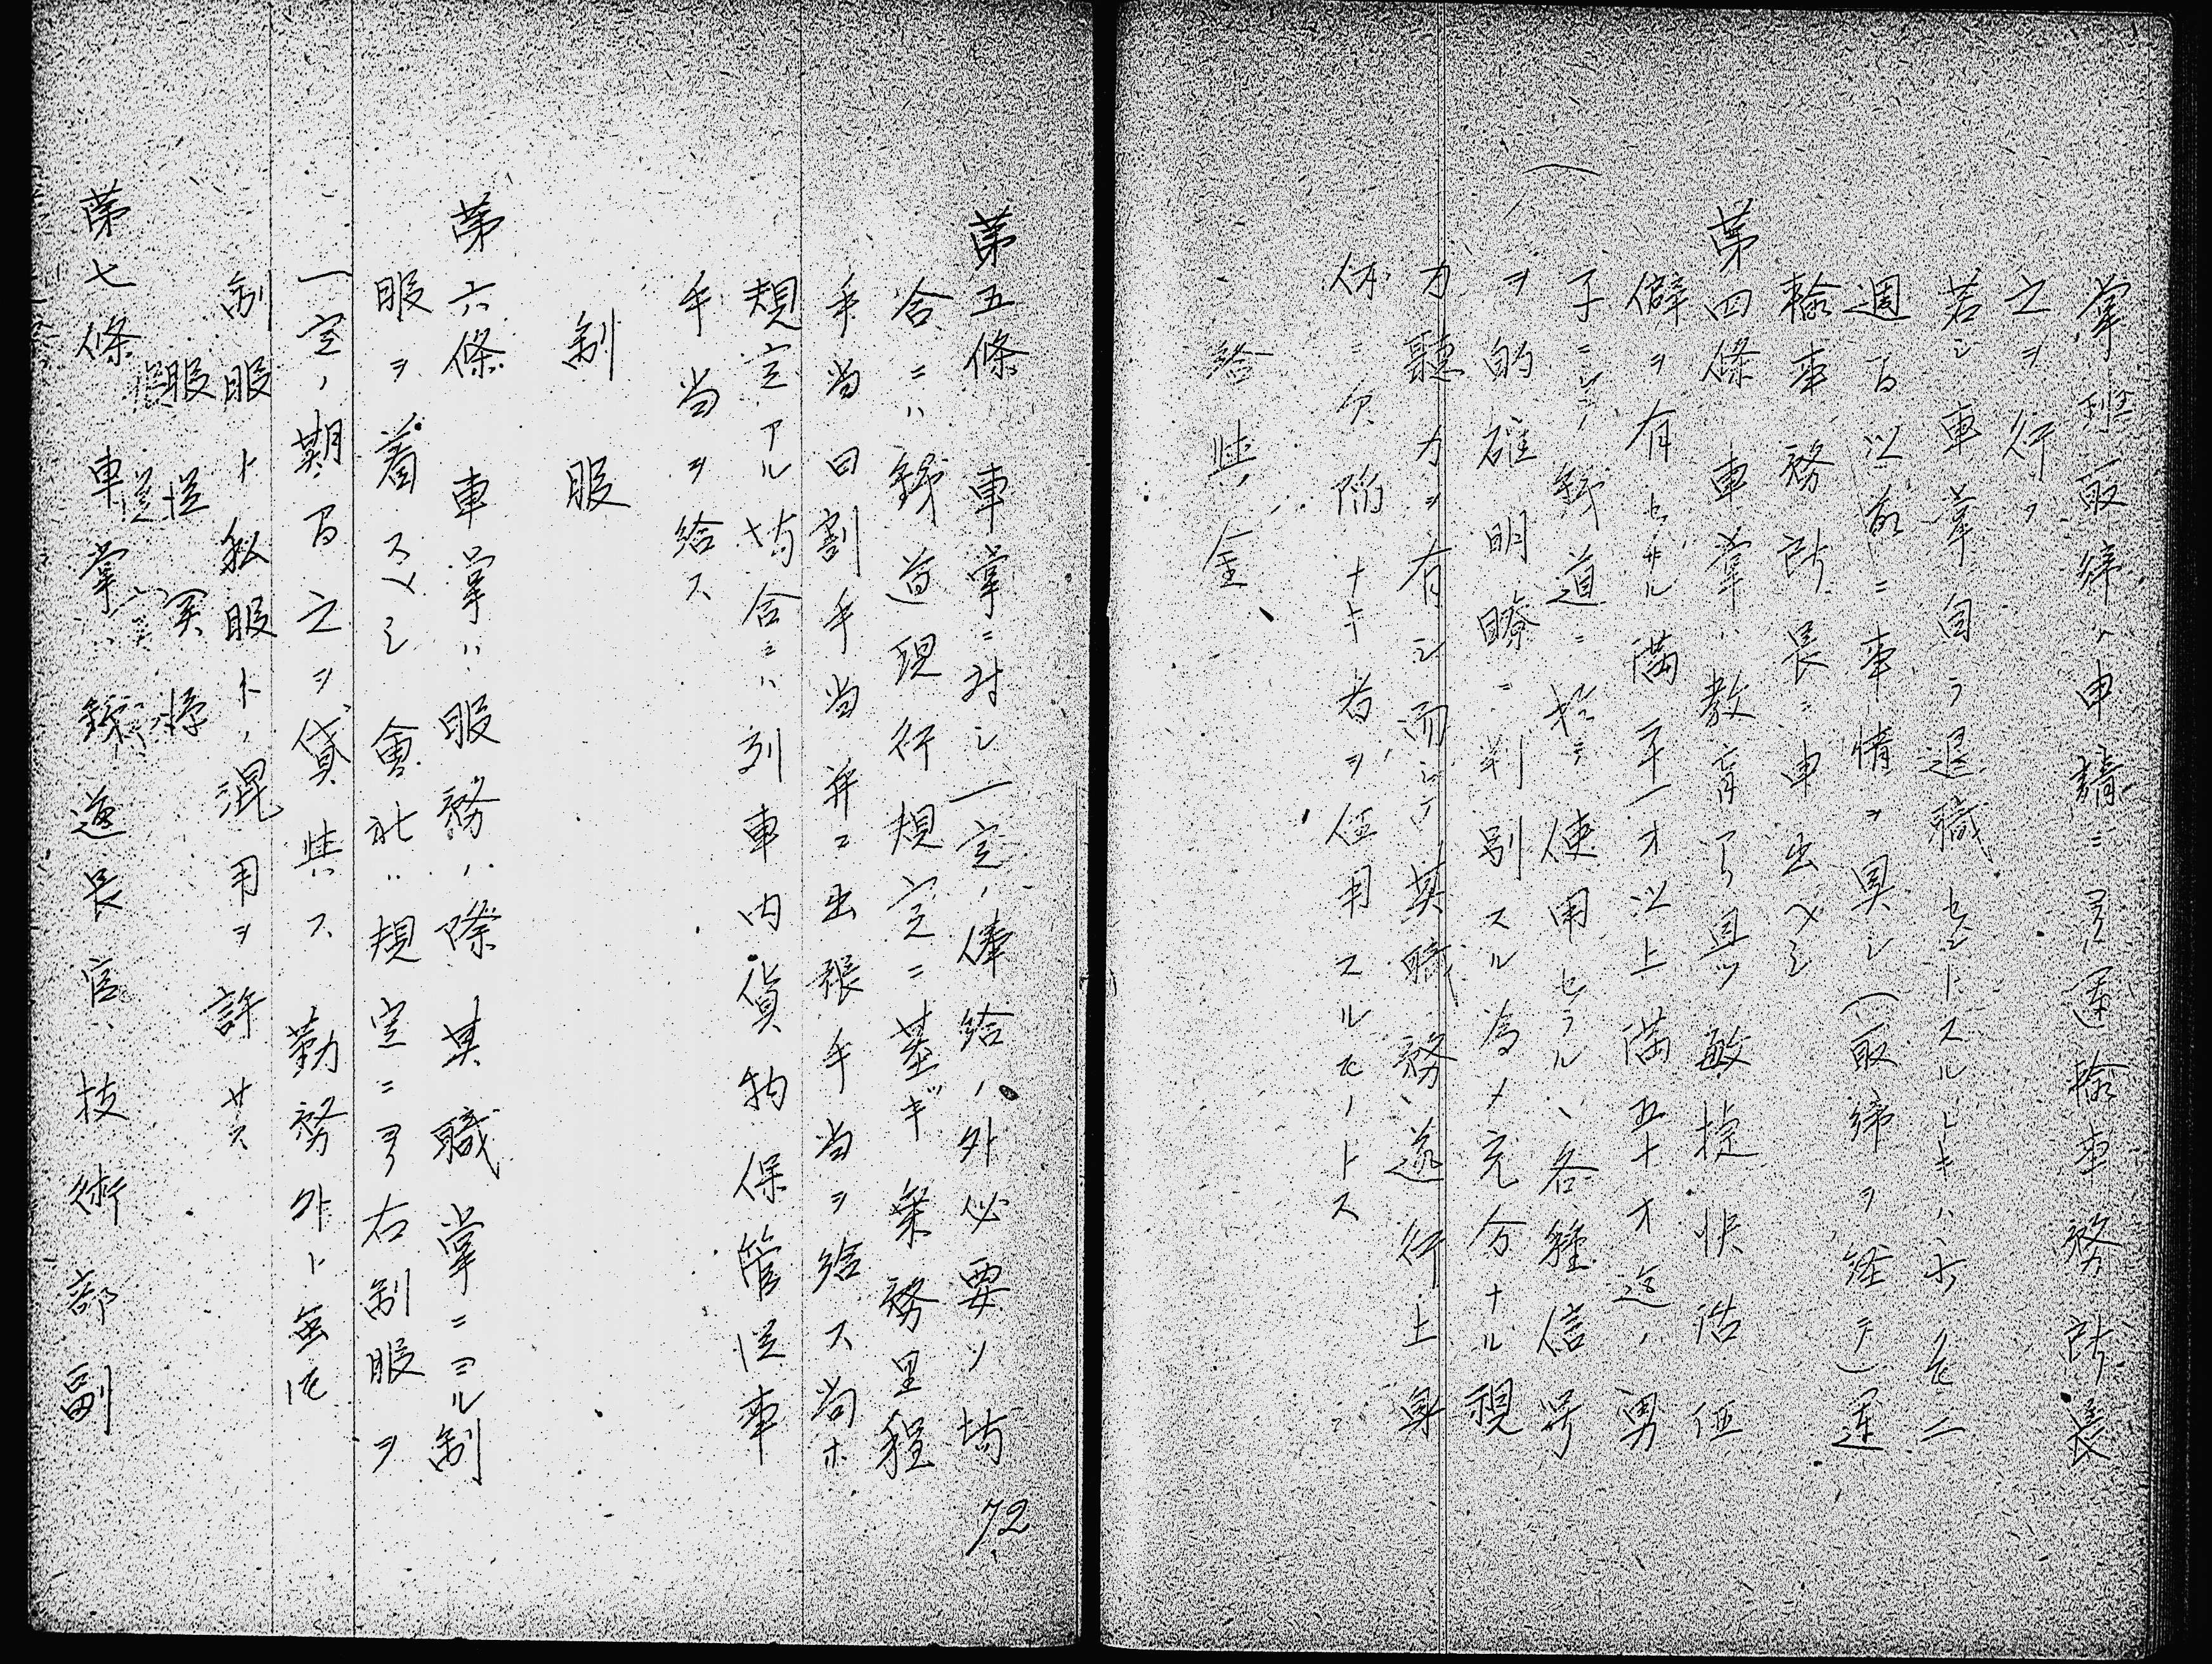 掌班取締ノ申請ニ戻運輸車務所長
之ヲ行フ
若シ車掌自ラ退職セントスルトキハ少クモ二
週間以前ニ事情ヲ具シ(取締ヲ経テ)運
輸車務所長ニ申出ベシ
第四條 車掌ハ教育アリ且ツ敏捷快活伍
僻ヲ有セザル満二十一才以上満五十才迄ノ勇
子ニシテ鉄道ニ於テ使用セラルヽ各種信号
ヲ的確明瞭ニ判別スル為メ充分ナル視
力聽力ヲ有シ而シテ其職務ヽ遂行上身
体ニ欠陥ナキ者ヲ任用スルモノトス
給与金
第五條 車掌ニ対シ一定ノ俸給ノ外必要ノ場
合ニハ鉄道現行規定ニ基ギ業務里程
手当日割手当并ニ出張手当ヲ給ス尚ホ
規定アル場合ニハ列車内貨物保管従事
手当ヲ給ス
制服
第六條 車掌ハ服務ノ際其職掌ニ ル制
服ヲ着スベシ會社ハ規定ニ 右制服ヲ
一定ノ期間之ヲ貸与ス 勤務外ト無モ
制服ト私服トノ混用ヲ許サス
服従関係
第七條 車掌ハ鉄道長官、技術部副
72